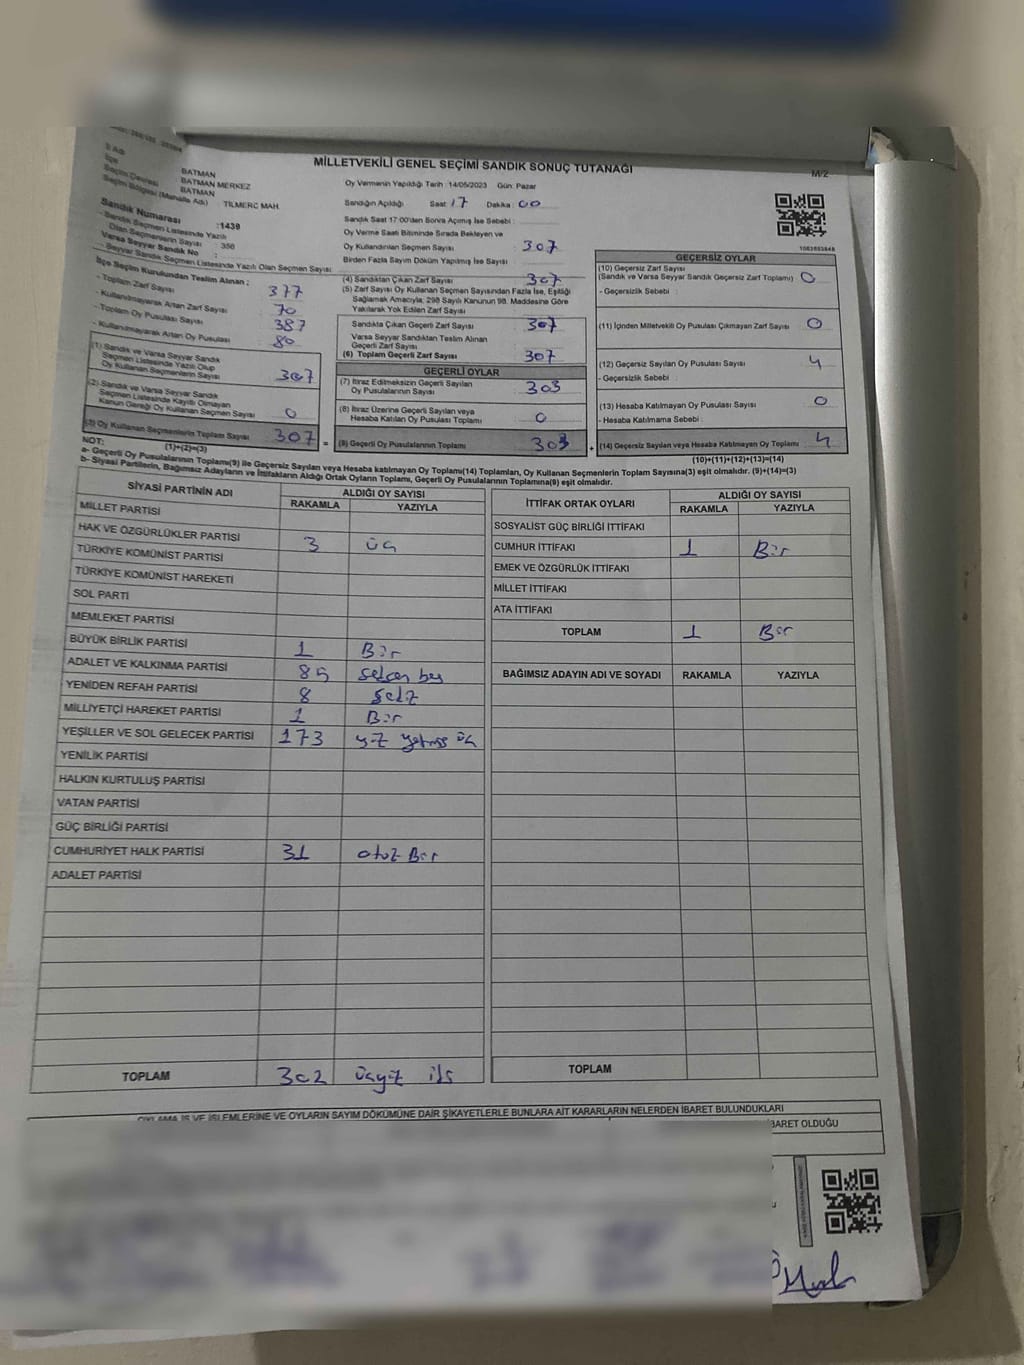 MİLLETVEKİLİ GENEL SEÇİMİ SANDIK SONUÇ TUTANAĞI
M/2
İl Adı BATMAN
İlçe BATMAN MERKEZ
Seçim Çevresi BATMAN
Seçim Bölgesi (Mahalle Adı) : TILMERC MAH.
Sandık Numarası :1439
- Sandık Seçmen Listesinde Yazılı
Olan Seçmenlerin Sayısı : 356
Varsa Seyyar Sandık No :
- Seyyar Sandık Seçmen Listesinde Yazılı Olan Seçmen Sayısı :
Oy Vermenin Yapıldığı Tarih :14/05/2023 Gün: Pazar
Sandığın Açıldığı Saat : 17 Dakika : 00
Sandık Saat 17:00'den Sonra Açılmış İse Sebebi :
Oy Verme Saati Bitiminde Sırada Bekleyen ve
Oy Kullandırılan Seçmen Sayısı : 307
Birden Fazla Sayım Döküm Yapılmış İse Sayısı :
1083683848
İlçe Seçim Kurulundan Teslim Alınan ;
- Toplam Zarf Sayısı : 377
- Kullanılmayarak Artan Zarf Sayısı : 70
- Toplam Oy Pusulası Sayısı : 387
- Kullanılmayarak Artan Oy Pusulası : 80
(1) Sandık ve Varsa Seyyar Sandık
Seçmen Listesinde Yazılı Olup
Oy Kullanan Seçmenlerin Sayısı : 307
(2) Sandık ve Varsa Seyyar Sandık
Seçmen Listesinde Kayıtlı Olmayan
Kanun Gereği Oy Kullanan Seçmen Sayısı : 0
(3) Oy Kullanan Seçmenlerin Toplam Sayısı : 307
(1)+(2)=(3)
(4) Sandıktan Çıkan Zarf Sayısı : 307
(5) Zarf Sayısı Oy Kullanan Seçmen Sayısından Fazla İse, Eşitliği
Sağlamak Amacıyla, 298 Sayılı Kanunun 98. Maddesine Göre
Yakılarak Yok Edilen Zarf Sayısı :
Sandıkta Çıkan Geçerli Zarf Sayısı : 307
Varsa Seyyar Sandıktan Teslim Alınan
Geçerli Zarf Sayısı :
(6) Toplam Geçerli Zarf Sayısı : 307
GEÇERLİ OYLAR
(7) İtiraz Edilmeksizin Geçerli Sayılan
Oy Pusulalarının Sayısı : 303
(8) İtiraz Üzerine Geçerli Sayılan veya
Hesaba Katılan Oy Pusulası Toplamı : 0
= (9) Geçerli Oy Pusulalarının Toplamı : 303
GEÇERSİZ OYLAR
(10) Geçersiz Zarf Sayısı
(Sandık ve Varsa Seyyar Sandık Geçersiz Zarf Toplamı) : 0
- Geçersizlik Sebebi :
(11) İçinden Milletvekili Oy Pusulası Çıkmayan Zarf Sayısı : 0
(12) Geçersiz Sayılan Oy Pusulası Sayısı : 4
- Geçersizlik Sebebi :
(13) Hesaba Katılmayan Oy Pusulası Sayısı : 0
- Hesaba Katılmama Sebebi :
+ (14) Geçersiz Sayılan veya Hesaba Katılmayan Oy Toplamı : 4
(10)+(11)+(12)+(13)=(14)
NOT:
a- Geçerli Oy Pusulalarının Toplamı(9) ile Geçersiz Sayılan veya Hesaba katılmayan Oy Toplamı(14) Toplamları, Oy Kullanan Seçmenlerin Toplam Sayısına(3) eşit olmalıdır. (9)+(14)=(3)
b- Siyasi Partilerin, Bağımsız Adayların ve İttifakların Aldığı Ortak Oyların Toplamı, Geçerli Oy Pusulalarının Toplamına(9) eşit olmalıdır.
SİYASİ PARTİNİN ADI ALDIĞI OY SAYISI
RAKAMLA YAZIYLA
MİLLET PARTİSİ
HAK VE ÖZGÜRLÜKLER PARTİSİ 3 üç
TÜRKİYE KOMÜNİST PARTİSİ
TÜRKİYE KOMÜNİST HAREKETİ
SOL PARTİ
MEMLEKET PARTİSİ
BÜYÜK BİRLİK PARTİSİ 1 Bir
ADALET VE KALKINMA PARTİSİ 85 seksen beş
YENİDEN REFAH PARTİSİ 8 sekiz
MİLLİYETÇİ HAREKET PARTİSİ 1 Bir
YEŞİLLER VE SOL GELECEK PARTİSİ 173 yüz yetmiş üç
YENİLİK PARTİSİ
HALKIN KURTULUŞ PARTİSİ
VATAN PARTİSİ
GÜÇ BİRLİĞİ PARTİSİ
CUMHURİYET HALK PARTİSİ 31 otuz Bir
ADALET PARTİSİ
TOPLAM 302 üçyüz iki
İTTİFAK ORTAK OYLARI ALDIĞI OY SAYISI
RAKAMLA YAZIYLA
SOSYALİST GÜÇ BİRLİĞİ İTTİFAKI
CUMHUR İTTİFAKI 1 Bir
EMEK VE ÖZGÜRLÜK İTTİFAKI
MİLLET İTTİFAKI
ATA İTTİFAKI
TOPLAM 1 Bir
BAĞIMSIZ ADAYIN ADI VE SOYADI RAKAMLA YAZIYLA
TOPLAM
OYLAMA İŞ VE İŞLEMLERİNE VE OYLARIN SAYIM DÖKÜMÜNE DAİR ŞİKAYETLERLE BUNLARA AİT KARARLARIN NELERDEN İBARET BULUNDUKLARI
BARET OLDUĞU